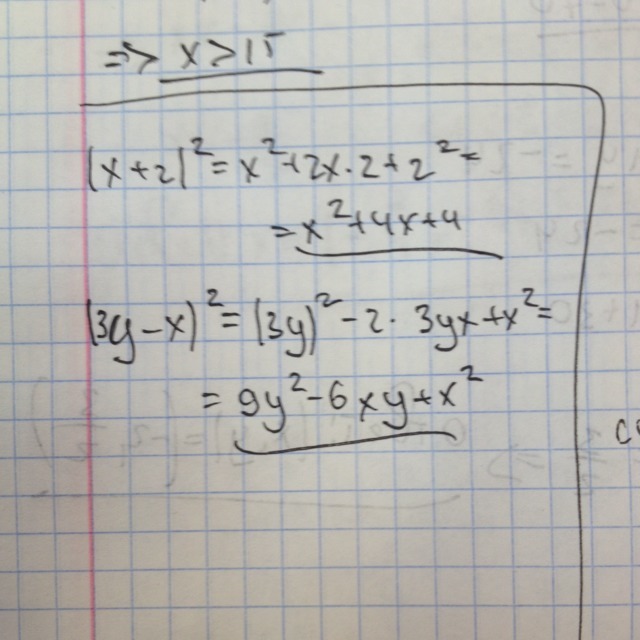 => x > 15
(x+2)² = x² + 2x · 2 + 2² =
= x² + 4x + 4
(3y - x)² = (3y)² - 2 · 3yx + x² =
= 9y² - 6xy + x²